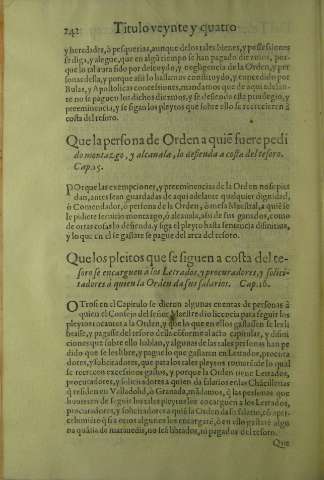 242 Titulo veynte y quatro
y heredades, ò pesquerias, aunque de los tales bienes, y possessiones
se diga, y alegue, que en algũ tiempo se han pagado diezmos, porq̃
que lo tal aura sido por descuydo, y negligencia de la Orden, y per
sonas della, y porque assi lo hallamos constituydo, y concedido por
Bulas, y Apostolicas concessiones, mandamos que de aqui adelan-
te no se paguen los dichos diezmos, y se defienda este priuilegio, y
preeminencia, y se sigan los pleytos que sobre ello se recrecieren à
costa del tesoro.
Que la persona de Orden a quiẽ fuere pedi
do montazgo, y alcauala, lo defienda a costa del tesoro.
Cap. 15.
POr que las exempciones, y preeminencias de la Orden no se pier
dan, antes sean guardadas de aqui adelante qualquier dignidad,
ò Comendador, ò persona de la Orden, ò mesa Maestral, a quiẽ se
le pidiere seruicio montazgo, ò alcauala, assi de sus ganados, como
de otras cosas lo defienda, y siga el pleyto hasta sentencia difinitiua,
y lo que en el se gastare se pague del arca del tesoro.
Que los pleitos que se siguen a costa del te-
soro se encarguen a los Letrados, y procuradores, y solici-
tadores à quien la Orden da sus salarios. Cap. 16.
OTrosi en el Capitulo se dieron algunas cuentas de personas à
quien el Consejo del señor Maestre dio licencia para seguir los
pleytos tocantes a la Orden, y que lo que en ellos gastassen se les li
brasse, y pagasse del tesoro della cõforme al acto capitular, y difini
ciones que sobre ello hablan, y algunas de las tales personas han pe
dido que se les libre, y pague lo que gastaron en Letrados, procura
dores, y solicitadores, que para los tales pleytos tomarõ de lo qual
se recrecen excessiuos gastos, y porque la Orden tiene Letrados,
procuradores, y solicitadores a quien da salarios en las Chãcillerias
q̃ residen en Valladolid, ò Granada, mãdamos, q̃ las personas que
huuieren de seguir los tales pleytos los encarguen a los Letrados,
procuradores, y solicitadores a quiẽ la Orden da su salario, cõ aper-
cebimiẽto q̃ si a otros algunos los encargarẽ, ò en ello gastarẽ algu
na quãtia de marauedis, no serã librados, ni pagados del tesoro.
Que